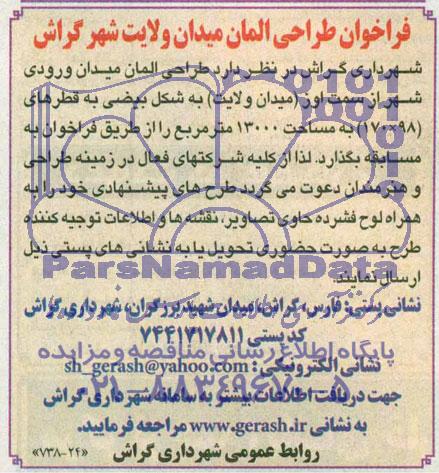 فراخوان طراحی المان میدان ولایت شهر گراش
شهرداری گراش در نظر دارد طراحی المان میدان ورودی
شهر از سمت اوز (میدان ولایت) به شکل بیضی به قطرهای
(۹۸×۱۷۰) به مساحت ۱۳۰۰۰ مترمربع را از طریق فراخوان به
مسابقه بگذارد. لذا از کلیه شرکتهای فعال در زمینه طراحی
و هنرمندان دعوت می گردد طرح های پیشنهادی خود را به
همراه لوح فشرده حاوی تصاویر، نقشه ها و اطلاعات توجیه کننده
طرح به صورت حضوری تحویل یا به نشانی های پستی ذیل
ارسال نمایند.
ParsNamadData
نشانی پستی: فارس، گراش، میدان شهید برزگران، شهرداری گراش
کد پستی ۷۴۴۱۷۱۷۸۱۱
پایگاه اطلاع رسانی مناقصه و مزایده
نشانی الکترونیکی: sh_gerash@yahoo.com
۰۲۱-۸۸۳۴۹۶۷۰-۵
جهت دریافت اطلاعات بیشتر به سامانه شهرداری گراش
به نشانی www.gerash.ir مراجعه فرمایید.
روابط عمومی شهرداری گراش
«۷۳۸-۲۴»